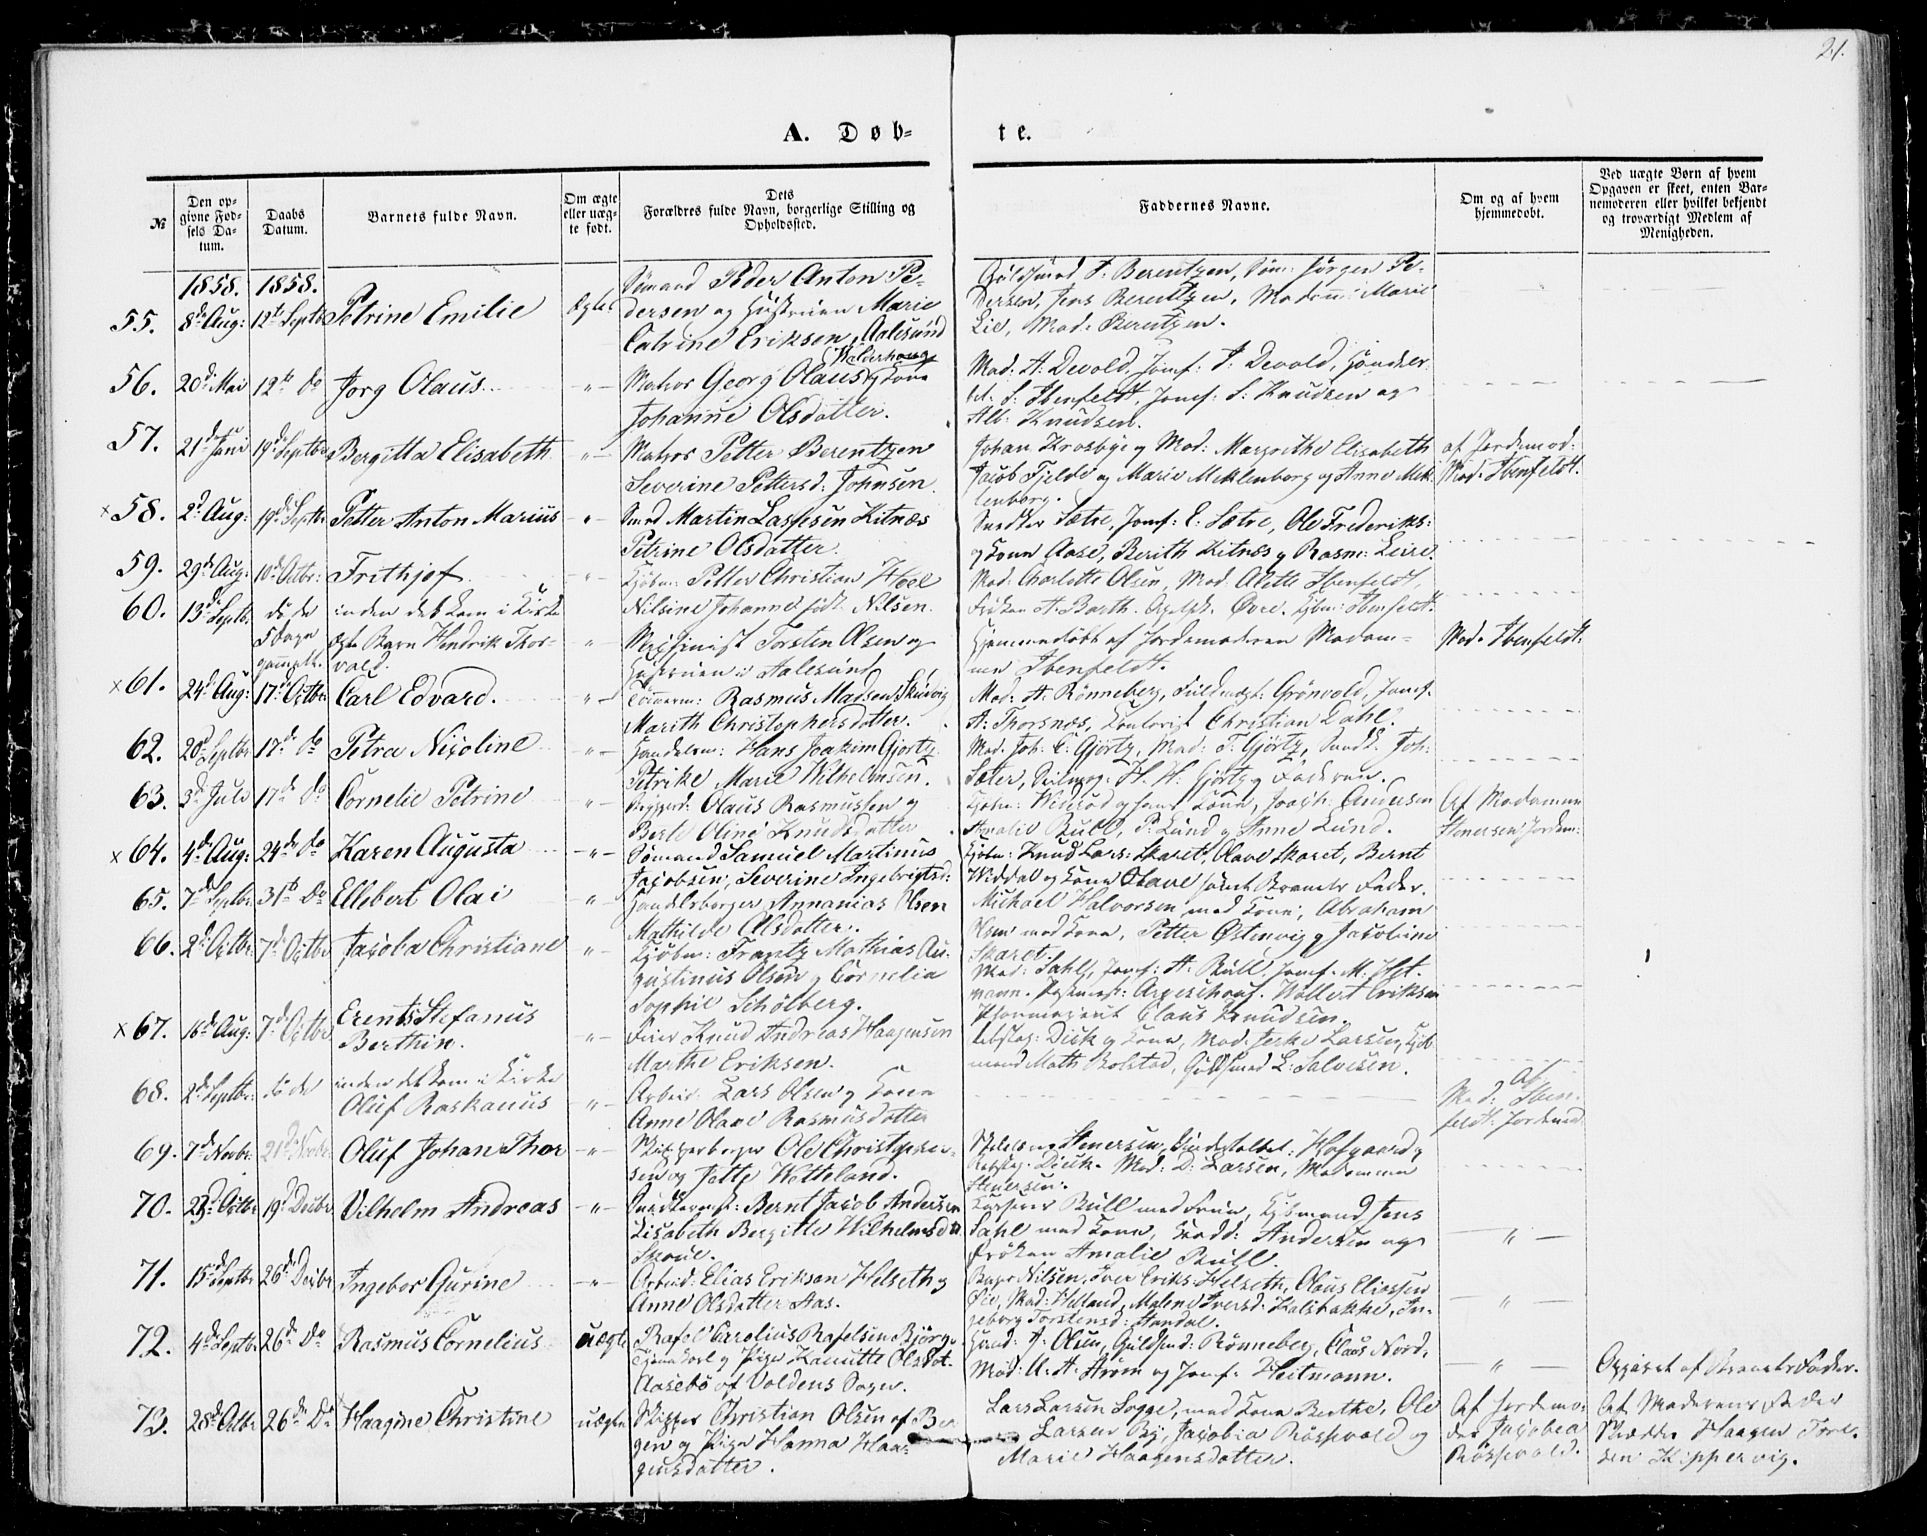 21.
A. Døb-
te.
№
Den op-
givne Fød-
sels Da-
tum.
Daabs
Datum.
Barnets fulde Navn.
Om ægte
eller uæg-
te født.
Dets
Forældres fulde Navn, borgerlige Stilling og
Opholdssted.
Faddernes Navne.
Om og af hvem
hjemmedøbt.
Ved uægte Børn af hvem
Opgaven er skeet, enten Bar-
nemoderen eller hvilket bekjendt
og troværdigt Medlem af
Menigheden.
1858. 1858.
55. 8de Aug: 12te Septbr Petrine Emilie Ægte
Sømand Peder Anton Pe-
dersen og Hustruen Marie
Catrine Eriksen, Aalesund
Guldsmed F. Berentzen, Søm: Jørgen Pe-
dersen, Jens Berentzen, Madam Marie
Lie, Mad: Berentzen.
56. 20de Mai 12te Do Jørg Olaus
Matros Georg Olaus g Kone
Johanne Olsdatter.
Mad: A: Devold, Jomf: P: Devold,
S: Ibenfeldt, Jomf: S: Knudsen og
Alb: Knudsen.
57. 21de Juni 19de Septbr Bergitta Elisabeth
Matros Petter Berentzen
Severine Petersd: Johnsen.
Johan Krosbye g Mad: Margrethe Elisabeth
Jacob Fjelde og Marie Meklenborg og Anne Mek-
lenborg.
af Jordemod:
Mad: Ibenfeldt.
x 58. 2d Aug: 19de Septbr Petter Anton Marius
Smed Martin Lassesen Kitnæs
Petrine Olsdatter.
Snedker Sætre, Jomf: E. Sætre, Ole Frederiks:
g Kone Aase, Berith Kitnæs g Rasm: Leire.
59. 29de Aug: 10de Octbr: Frithjof
Kjøbm: Petter Christian Hoel
Nilsine Johanne født Nilsen.
Mad: Charlotte Olsen, Mad. Alette Ibenfeldt,
Frøken A. Barth. Øvre. Kjøbm: Ibenfeldt.
60. 13de Septb. døde
5 Dage
gammelt.
inden det kom i Kirke
Ægte Barn Hendrik Thor-
vald.
Torsten Olsen og
Hustruen i Aalesund
Hjemmedøbt af Jordemoderen Madam-
me Ibenfeldt.
Mad. Ibenfeldt.
x 61. 24de Aug: 17de Octbr. Carl Edvard.
Tømrerm: Rasmus Madsen
Marith Christophersdatter.
Mad. A: Rønneberg, Fuldmægt: Grønvold, Jomf.
A: Thorsnæs, Kontorist Christian Dahl.
62. 20de Septbr 17de Do Petra Nicoline
Handelsm: Hans Joakim Gjørtz.
Petrike Marie Wilhelmsen.
Mad. Joh: C: Gjørtz, Mad: T. Gjørtz, Snedk. Joh:
Sæter, H. H: Gjørtz g Faderen.
63. 3d Juli 17de Do Cornelie Petrine
Olaus Rasmussen g
Berte Oline Knudsdatter
Kjøbm: g hans Kone, Joach: Andersen
Amalie Bull, P. Lund g Anne Lund.
Af Madamme
Stenersen Jordem:
x 64. 4de Aug: 24de Do Karen Augusta
Sømand Samuel Martinus
Jacobsen, Severine Ingebrigtsd:
Kjøbm: Knud Lars: Skaret, Olave Skaret, Bernt
Widdal og Kone Olave samt Barnets Fader.
65. 7de Septbr 31te Do Ellebert Olai
Handelsborger Annanias Olsen
Mathilde Olsdatter.
Michael Halvorsen med Kone, Abraham
Olsen med Kone, Petter Østenvig g Jacobine
Skaret.
66. 2d Octbr. 7de Jacoba Christiane
Kjøbm: Frantz Mathias Au-
gustinus Olsen g Cornelia
Sophie Schølberg.
Mad: Dahl, Jomf: A. Bull. Jomf. M. Hei-
mann. Wollert Eriksen
Claus Knudsen.
x 67. 16de Aug: 7de Erents Stefanus
Berthin.
Knud Andreas Haagensen
Marthe Eriksen.
Dick g Kone, Mad: Jerke Larsen,
mand Math Bolstad, Guldsmed L. Salvesen.
68. 2de Septbr. døde inden det kom i Kirke
Oluf Raskanus
Arbeid: Lars Olsen g Kone
Anne Olave Rasmusdatter
Af
Mad: Iben-
feldt: Jordemod
69. 7de Novbr. 21de Novbr. Oluf Johan Thor
Skipperborger Ole Christopher-
sen og Jette Wetteland.
Stenersen, Hofgaard g
Dick. Mad: D: Larsen, Madamme
Stenersen.
70. 23de Octbr. 19de Decbr Vilhelm Andreas
Bernt Jacob Andersen
Lisabeth Bergitte Wilhelmsd:
Bull med Frue, Kjøbmand Jens
Dahl med Kone, Andersen og
Frøken Amalie Bull.
71. 15de Septbr 26de Decbr Ingebor Gurine
Arbeid: Elias Eriksen Helseth g
Anne Olsdatter Aas.
Nilsen, Iver Eriks: Helseth, Olaus Eliassen
Øie, Mad: Helland, Malene Iversd: Kalsbakke, In-
geborg Torstensd: Standal.
72. 4de Septbr 26de Do Rasmus Cornelius uægte
Rafel Carolius Rafelsen Bjørge
Tjenekarl g Pige Kanutte Olsdat.
Aasebø af Voldens Sogn.
Hand: J. Olsen, Guldsmd: Rønneberg, Claus Nord,
Mad: A. A: Strøm og Jomf. Heitmann.
Opgivet af Barnets Fader.
73. 28de Octbr 26de Do Haagine Christine uægte
Skipper Christian Olsen af Ber-
gen og Pige Hanna Haa-
gensdatter.
Lars Larsen Logge, med Kone Berthe, Ole
Larsen By, Jacobia Røssevold og
Marie Haagensdatter.
Af Jordemo-
der Jacobea
Røssevold.
Af Moderens Fader
Haagen Tore-
sen Kippervig.